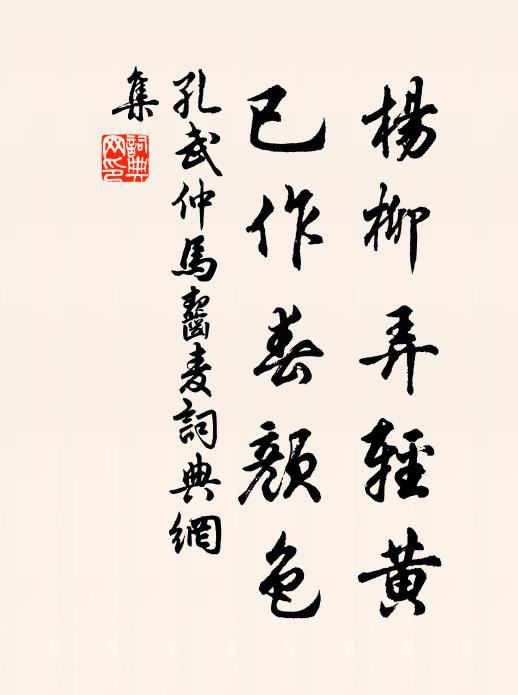 楊柳弄輕黃
已作春顏色
孔武仲馬齧麦詞典網
集
詞典
網印